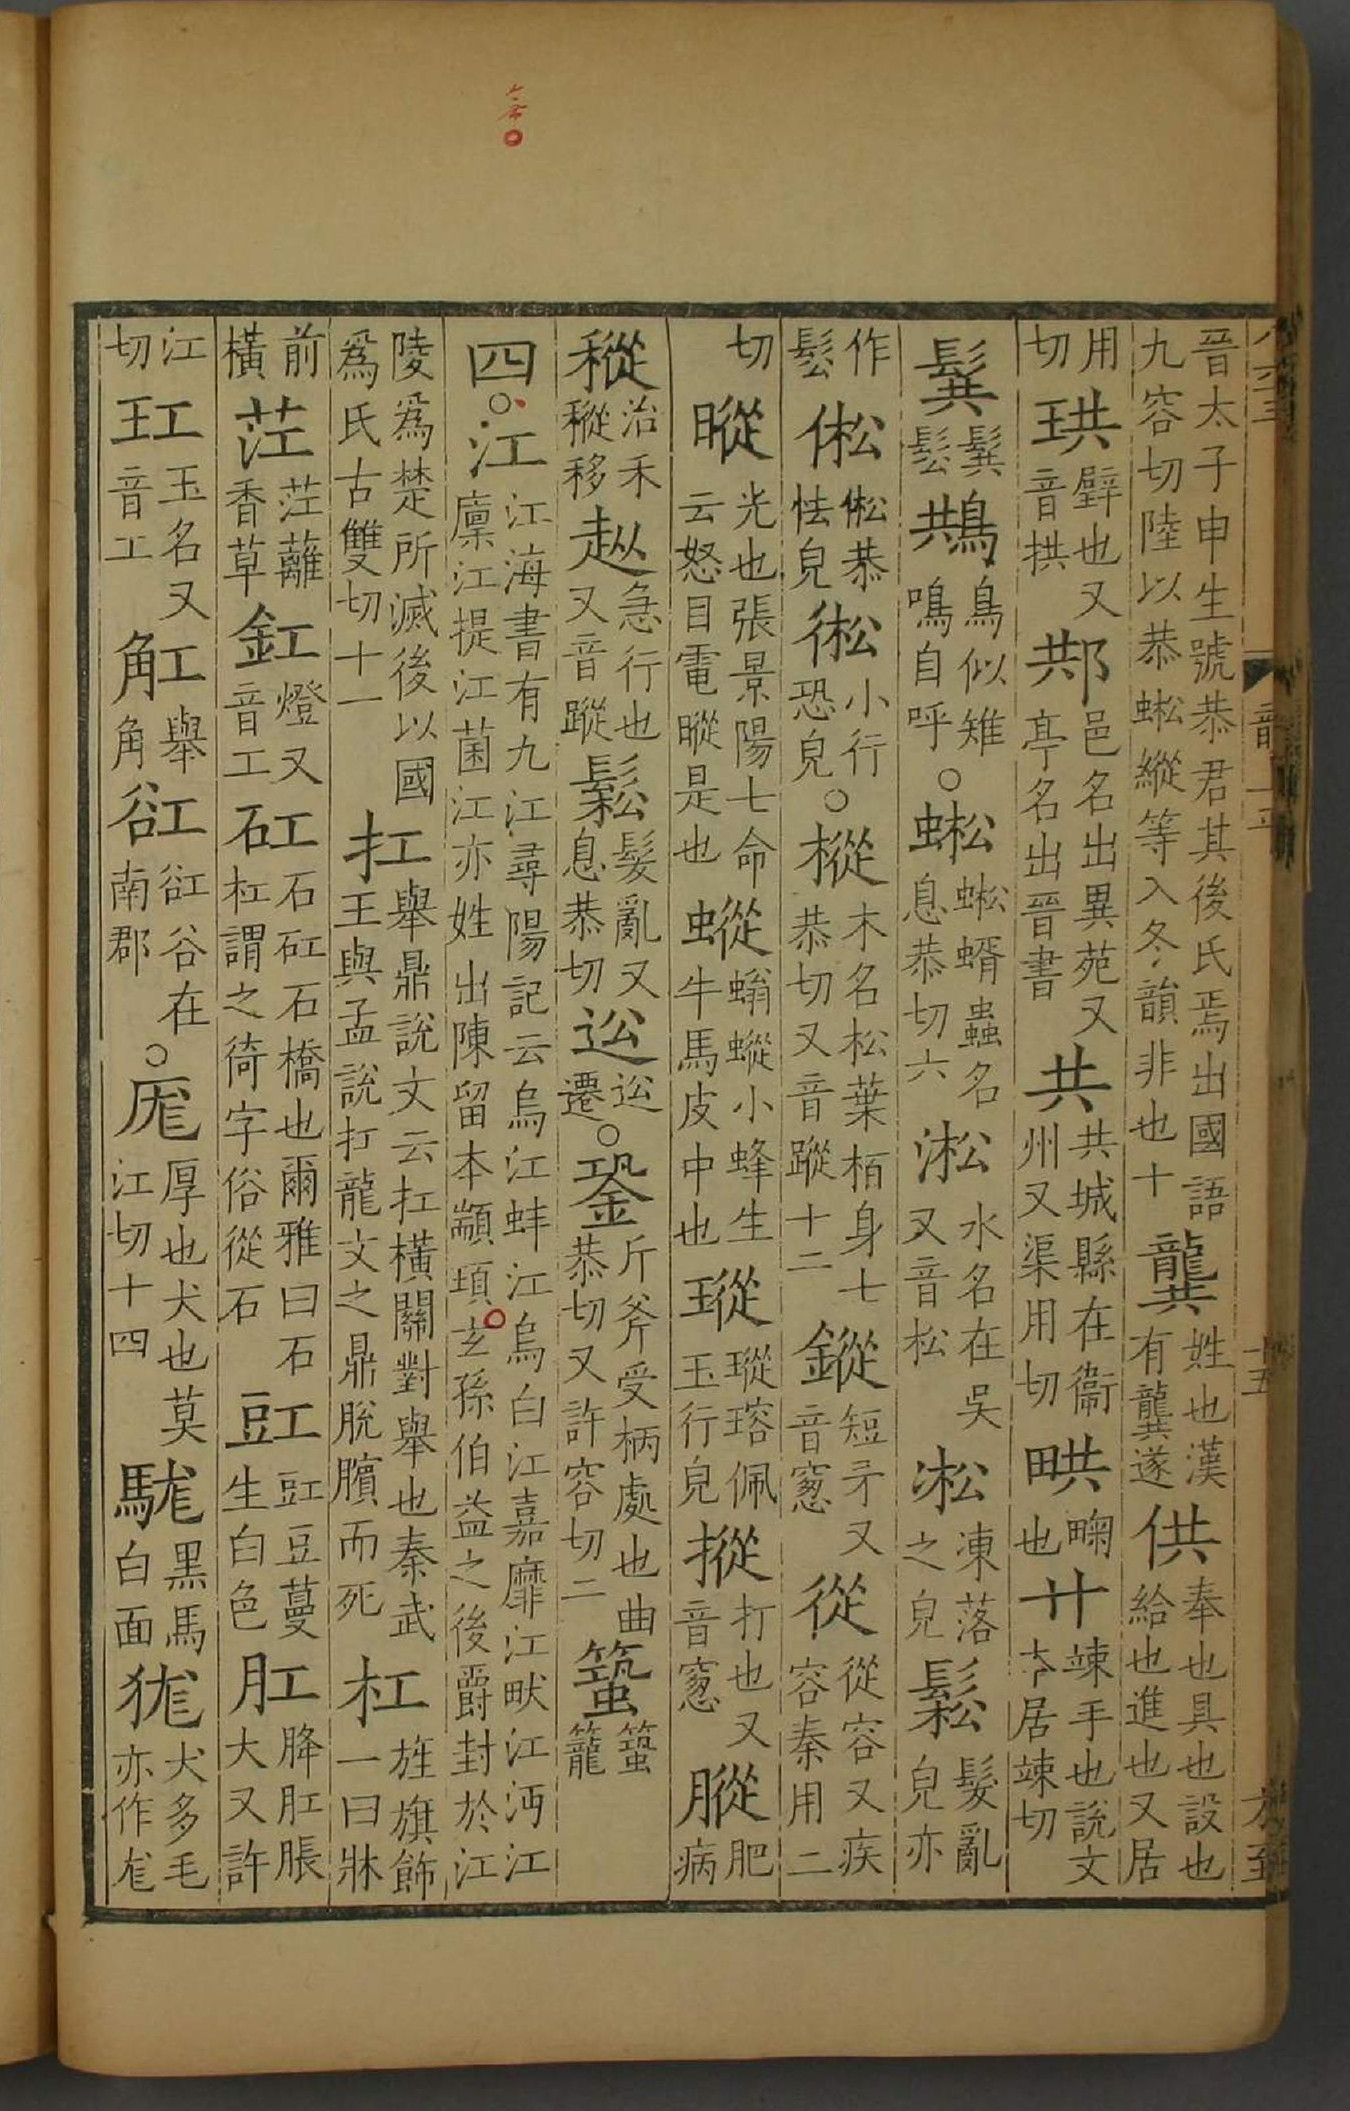 晉太子申生號恭君其後氏焉出國語九容切陸以恭蜙縱等入冬韻非也十龔姓也漢有龔遂供奉也具也設也給也進也又居
用切珙璧也又音拱䢼邑名出異苑又亭名出晉書共共城縣在衞州又渠用切㤨畮也廾竦手也說文本居竦切
䰃䰃鬆䳍鳥似雉鳴自呼○蜙蜙蝑蟲名息恭切六淞水名在吳又音松凇凍落之皃鬆髮亂皃亦
作䯳倯倯恭怯皃㣝小行恐皃○樅木名松葉栢身七恭切又音蹤十二鏦短矛又音窻從從容又疾容秦用二
切暰光也張景陽七命云怒目電暰是也䗥螉䗥小蜂生牛馬皮中也瑽瑽瑢佩玉行皃摐打也又音窻䐫肥病
䅜治禾䅜移䢐急行也又音蹤鬆髮亂又息恭切彸彸遷○銎斤斧受柄處也曲恭切又許容切二蛩蛩籠
四○江江海書有九江尋陽記云烏江蚌江烏白江嘉靡江畎江沔江廩江提江菌江亦姓出陳留本顓頊玄孫伯益之後爵封於江
陵爲楚所滅後以國爲氏古雙切十一扛舉鼎說文云扛橫關對舉也秦武王與孟說扛龍文之鼎脫臏而死杠旌旗飾一曰牀
前橫茳茳蘺香草釭燈又音工矼石矼石橋也爾雅曰石杠謂之徛字俗從石豇豇豆蔓生白色肛胮肛脹大又許
江切玒玉名又音工䚗舉角谾谾谷在南郡○厖厚也犬也莫江切十四駹黑馬白面狵犬多毛亦作尨
韻上平
十五